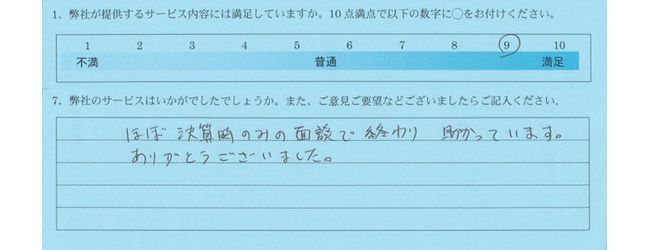 1、弊社が提供するサービス内容には満足していますか。10点満点で以下の数字に○をお付けください。
1 2 3 4 5 6 7 8 9 10
不満 普通 満足
7、弊社のサービスはいかがでしたでしょうか。また、ご意見ご要望などございましたらご記入ください。
ほぼ決算時のみの面談で終わり 助かっています。
ありがとうございました。